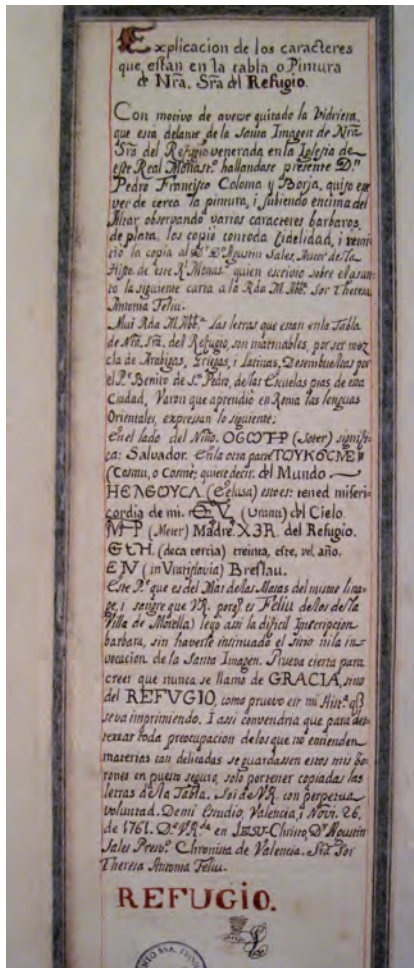 Explicacion de los caracteres
que estan en la tabla o Pintura
de Nrã. Srã del Refugio.
Con motivo de averse quitado la Vidriera,
que esta delante de la Santa Imagen de Nrã
Srã del Refugio venerada en la Iglesia de
este Real Monastº. hallandose presente D.ⁿ
Pedro Francisco Coloma y Borja, quiso
ver de cerca la pintura, i subiendo encima del
Altar observando varios caracteres barbaros,
de plata, los copió contoda fidelidad, i remi-
tió la copia al Dʳ Dⁿ Agustin Sales, Autor de la
Histo. de este Rˡ Monas.º quien escrivio sobre el asun-
to la siguiente carta a la Rda M. Abb.ª Sor Theresa
Antonia Feliu.
Mui Rda M. Abb.ª Las letras que estan en la Tabla
de Nrã. Srã. del Refugio, son matinables, por ser mez
cla de Arabigas, Griegas, i Latinas. Desembueltas por
el P.ᵉ Benito de S.ⁿ Pedro, de las Escuelas pias de esta
Ciudad, Varon que aprendió en Roma las lenguas
Orientales, expressan lo siguiente:
En el lado del Niño. (Soter) signifi-
ca: Salvador. En la otra parte
(Cosmu, o Cosmè; quiere decir. del Mundo
(Eelusa) esto es: tened miseri-
cordia de mi. (Uranu) del Cielo.
(Meter) Madre. X3R. del Refugio.
(deca tercia) treinta, este, vel, año.
EN (in Vratislavia) Breslau.
Este P.ᵉ que es del Mas de las Matas del mismo lina-
ge, i sangre que VR. porq̃ es Feliu de los de la
Villa de Morella) leyó assi la dificil Inscripcion
barbara, sin haverle insinuado el sitio ni la in-
vocacion de la Santa Imagen. Prueva cierta para
creer que nunca se llamo de GRACIA, sino
del REFVGIO, como pruevo en mi Hist.ª
se va imprimiendo. I assi convendria que para des-
terrar toda preocupacion de los que no entienden
materias tan delicadas se guardassen estos mis bo-
rones en puesto seguro, solo por tener copiadas las
letras de la Tabla. Soi de VR. con perpetua
voluntad. De mi Estudio, Valencia, i Novi. 26.
de 1761. D.ᵉ V.R.ᵈᵃ en JESU-Christo, Dʳ Agustin
Sales Presvº. Chronista de Valencia. Srã Sor
Theresa Antonia Feliu.
REFUGIO.